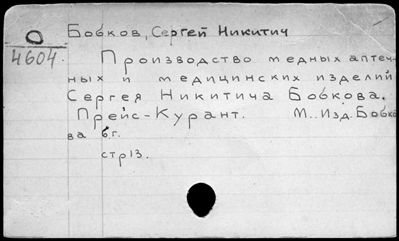 О
4604.
Бобков, Сергей Никитич
Производство медных аптеч-
ных и медицинских изделий
Сергея Никитича Бобкова.
Прейс-Курант. М.. Изд. Бобко
ва б.г.
стр 13.